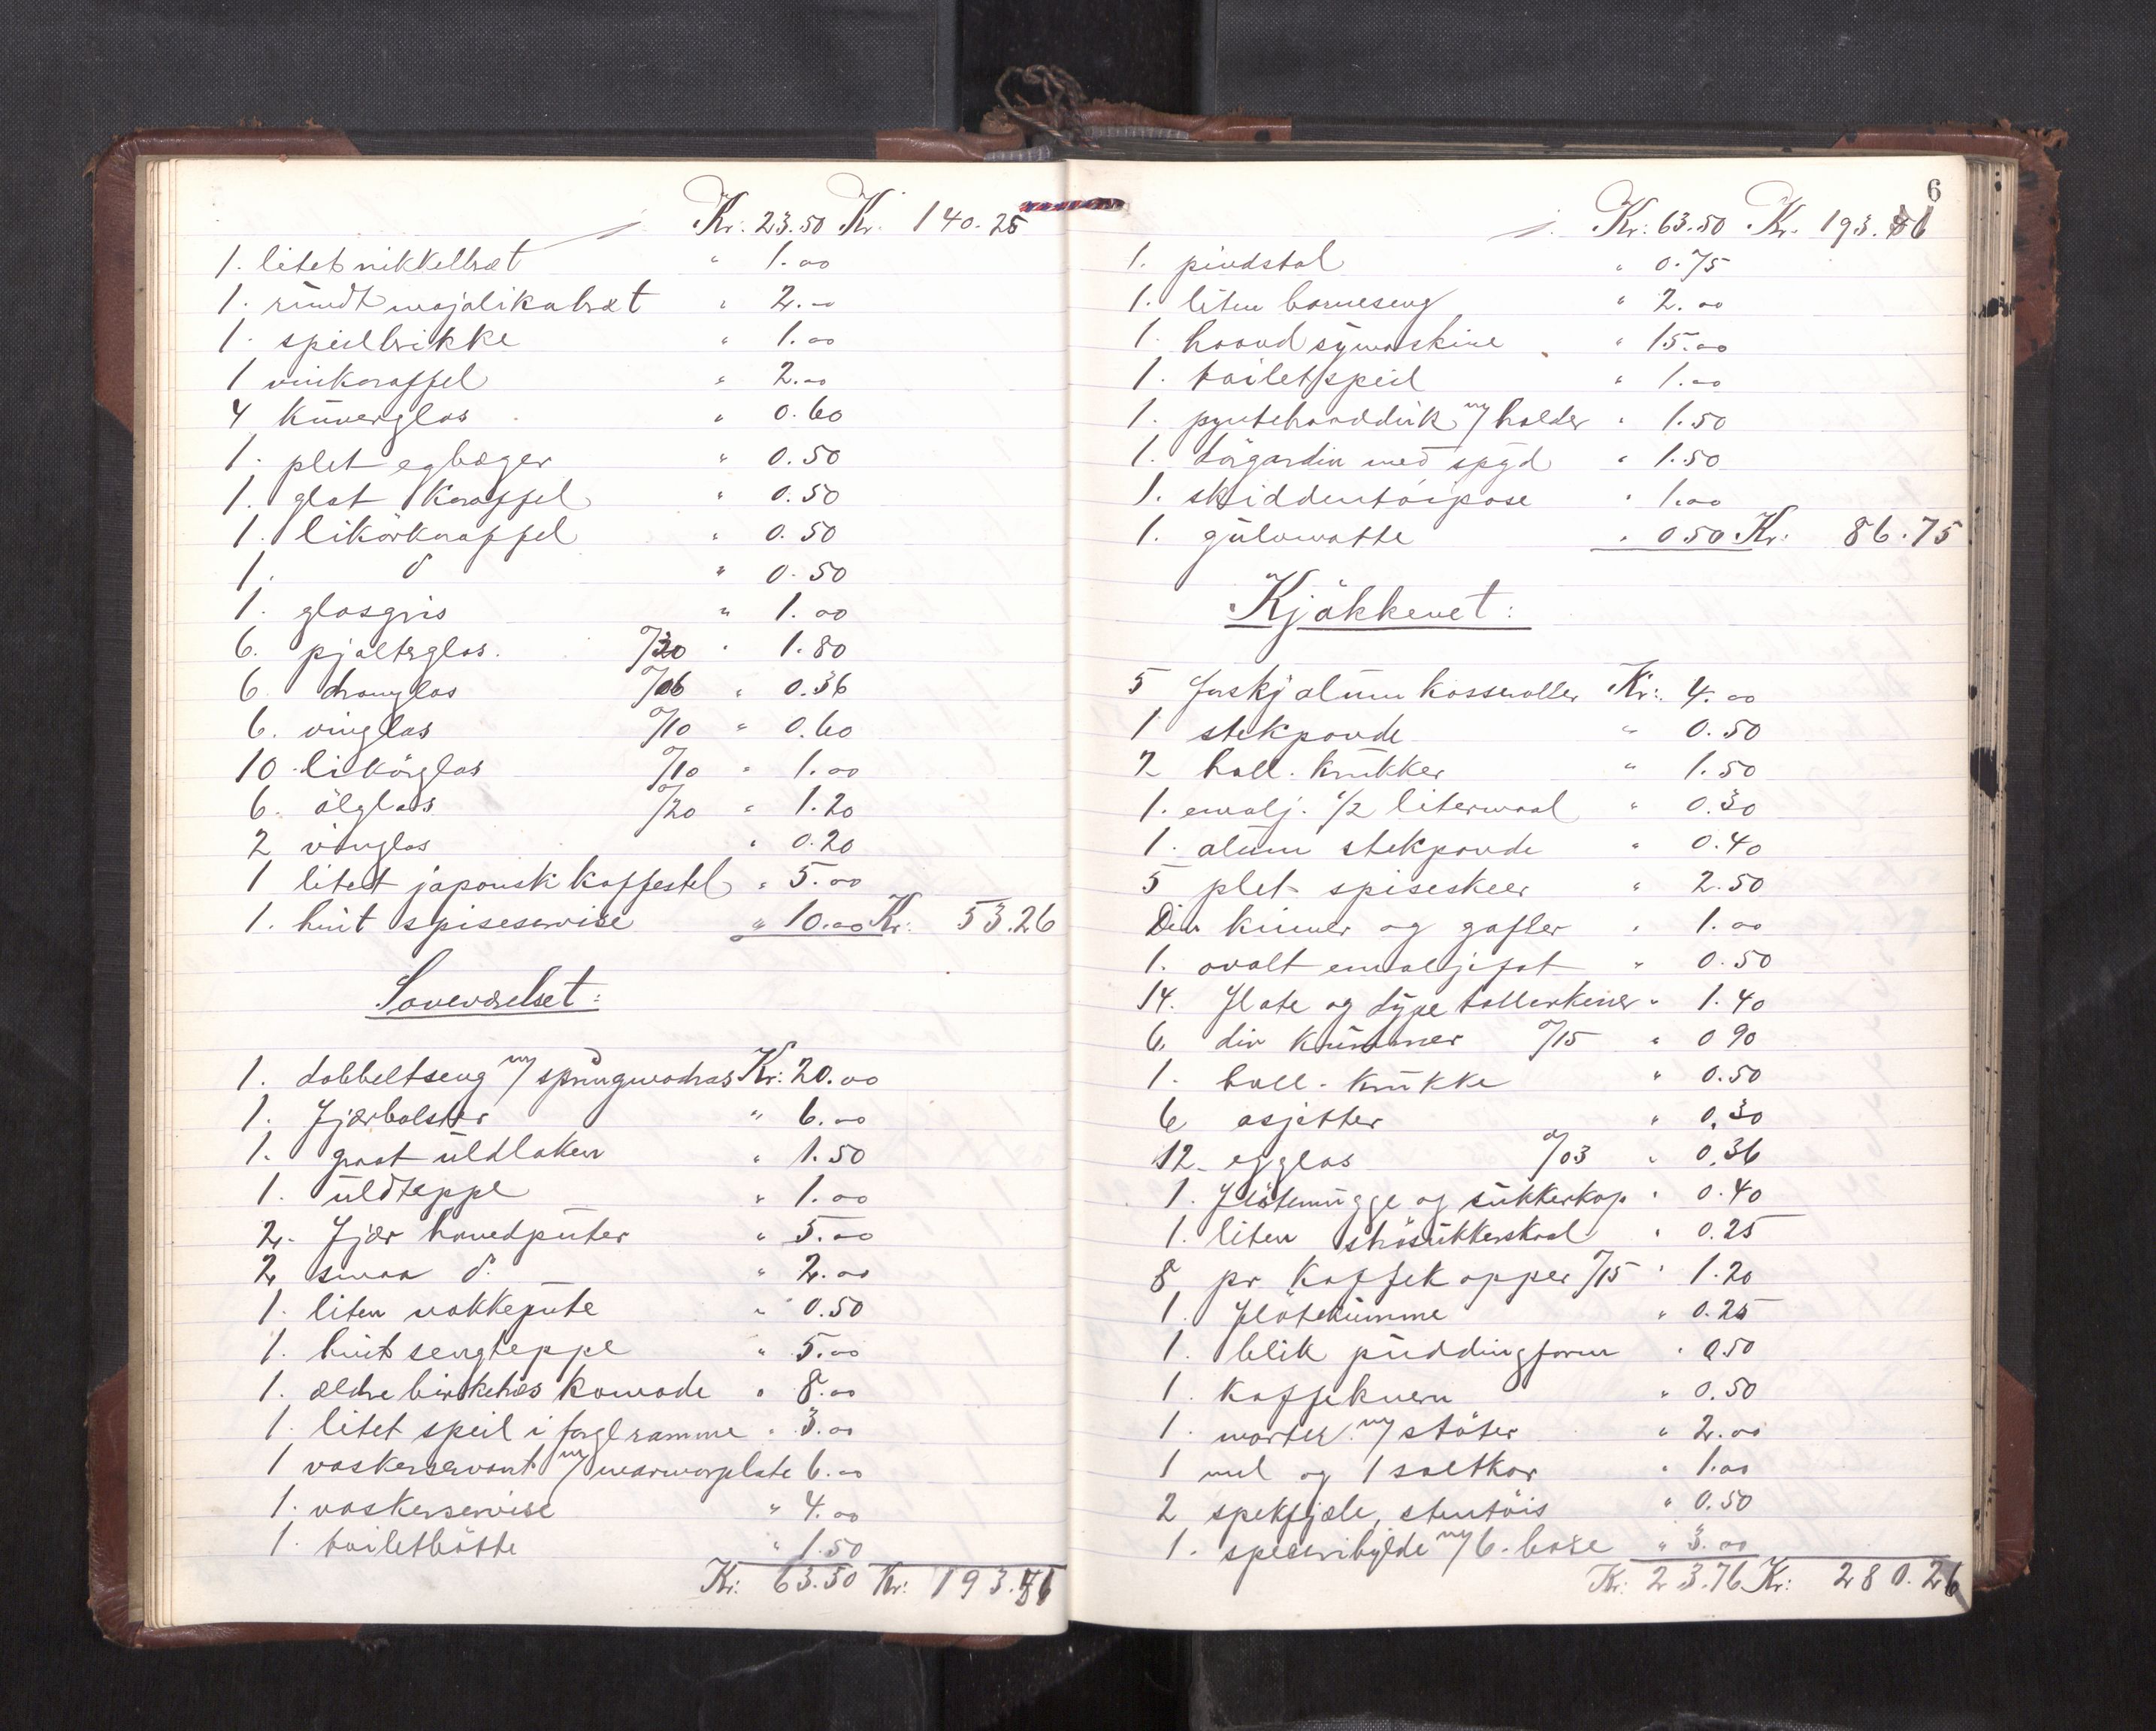 Kr. 23.50 Kr. 140.25
1. litet nikkelbræt " 1.00
1. rundt majolikabræt " 2.00
1. speilbrikke " 1.00
1 vinkaraffel " 2.00
4 kuverglas " 0.60
1. plet egbæger " 0.50
1. glat karaffel " 0.50
1. likörkaraffel " 0.50
1. d° " 0.50
1. glasgris " 1.00
6. pjolterglas. à/30 " 1.80
6 dramglas à/06 " 0.36
6. vinglas à/10 " 0.60
10 likörglas à/10 " 1.00
6. ölglas à/20 " 1.20
2 vinglas " 0.20
1 litet japansk kaffestel " 5.00
1. hvit spiseservise " 10.00 Kr: 53.26
Soveværelset:
1. dobbeltseng m/ springmadras Kr: 20.00
1. fjærbolster " 6.00
1. graat uldlaken " 1.50
1. uldteppe " 1.00
2. fjær hovedputer " 5.00
2 smaa d° " 2.00
1. liten nakkepute " 0.50
1. hvit sengteppe " 5.00
1. ældre birketræs komode " 8.00
1. litet speil i forgl ramme " 3.00
1 vaskeservant m/ marmorplate 6.00
1. vaskeservise " 4.00
1. toiletbötte " 1.50
Kr: 63.50 Kr: 193.51
6
Kr: 63.50 Kr. 193.51
1. pindstol " 0.75
1. liten barneseng " 2.00
1. haand symaskine " 15.00
1. toiletspeil " 1.00
1. pyntehaandduk m/ holder " 1.50
1. dörgardin med spyd " 1.50
1. skiddentöipose " 1.00
1. gulvmatte " 0.50 Kr: 86.75
Kjökkenet:
5 forskj alum kasseroller Kr: 4.00
1 stekpande " 0.50
2 holl. krukker " 1.50
1. emalj. 1/2 litermaal " 0.30
1. alum stekpande " 0.40
5 plet spiseskeer " 2.50
Div kniver og gafler " 1.00
1. ovalt emaljefat " 0.50
14. flate og dype tallerkener " 1.40
6. div kummer à/15 " 0 90
1. holl. krukke " 0.50
6 asjetter " 0.30
12. egglas à/03 " 0.36
1. flötemugge og sukkerkop " 0.40
1. liten strösukkerskaal " 0.25
8 pr kaffekopper à/15 " 1.20
1. flötekumme " 0.25
1. blik puddingform " 0.50
1. kaffekvern " 0.50
1. morter m/ stöter " 2.00
1 mel og 1 saltkar " 1.00
2 spekfjæle, stentöis " 0.50
1. speserihylde m/ 6. bokse " 3.00
Kr: 23.76 Kr: 280.26